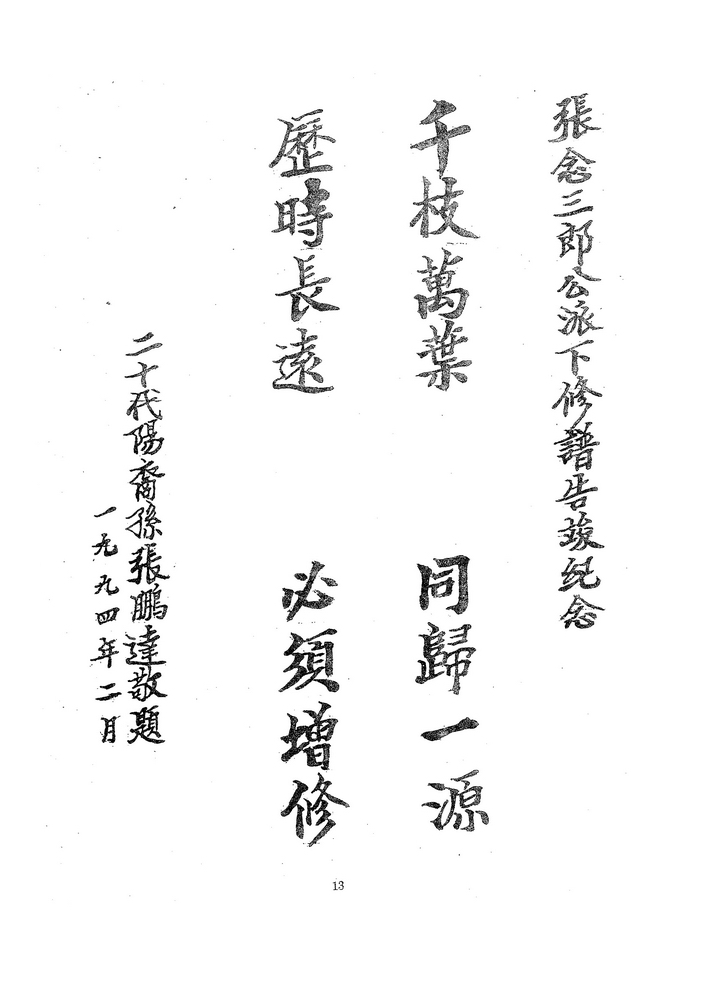 張念三郎公派下修譜告竣纪念
千枝萬葉 同歸一源
歷時長遠 必須增修
二十代陽裔孫張鵬達敬題
一九九四年二月
13